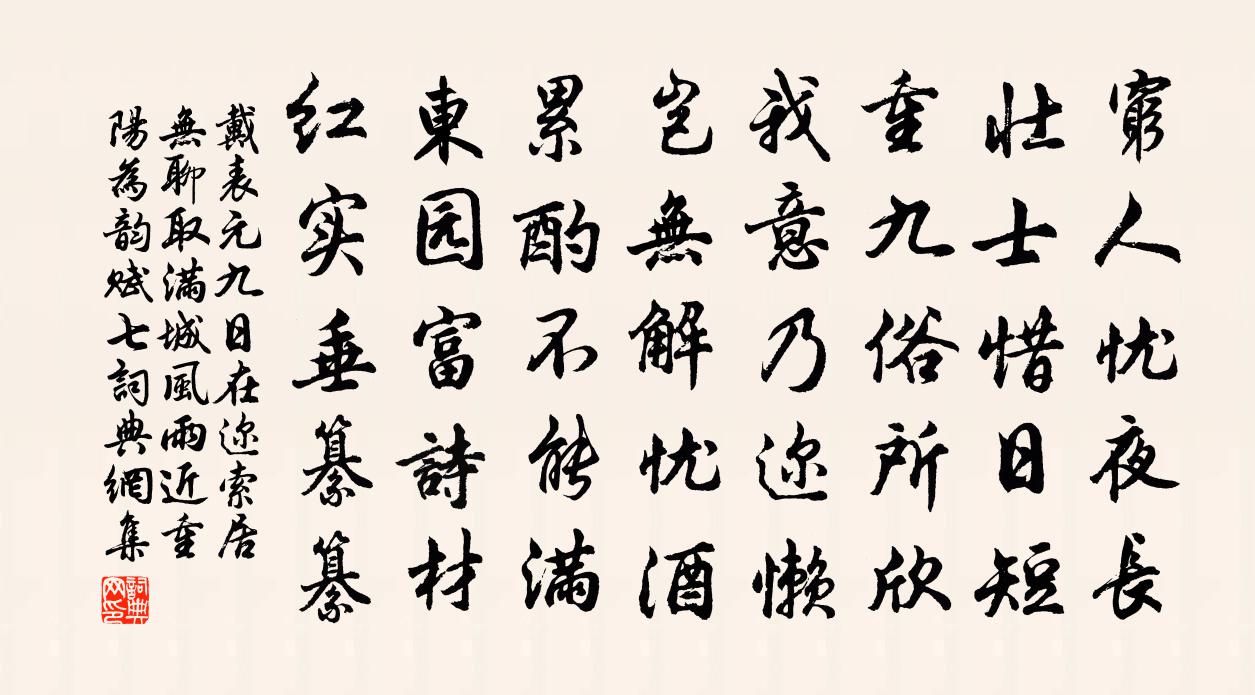 窮人忧夜長
壮士惜日短
重九俗所欣
我意乃迩懒
岂無解忧酒
累酌不能满
東园富詩材
红实垂纂纂
戴表元九日在迩索居
無聊取满城風雨近重
陽為韵赋七詞典網集
詞典網印